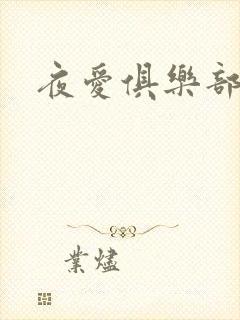 夜愛俱樂部
業燼